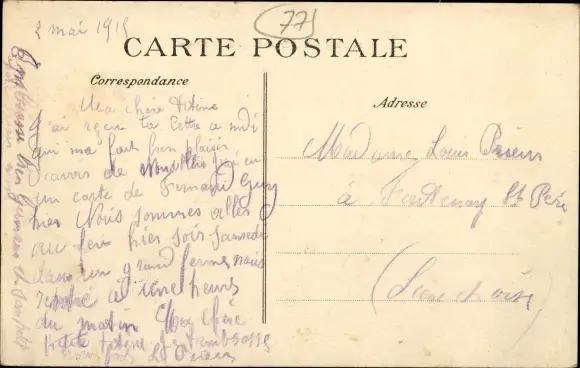 2 mai 1915
77
CARTE POSTALE
Correspondance
Adresse
Ma chère Titine
J'ai reçu ta lettre a midi
qui ma fait bien plaisir
d'avoir de j'ai eu
un carte de Fernand Guy
hier Nous sommes allés
au feu hier soir Samedi
dans un grand ferme nous
rentré a heurs
du matin Moy chère
petite titine je t'embrasse
L Prieur
Embrasse bien Germaine et
Madame Louis Prieur
à Fontenay St Père
(Seine et Oise)